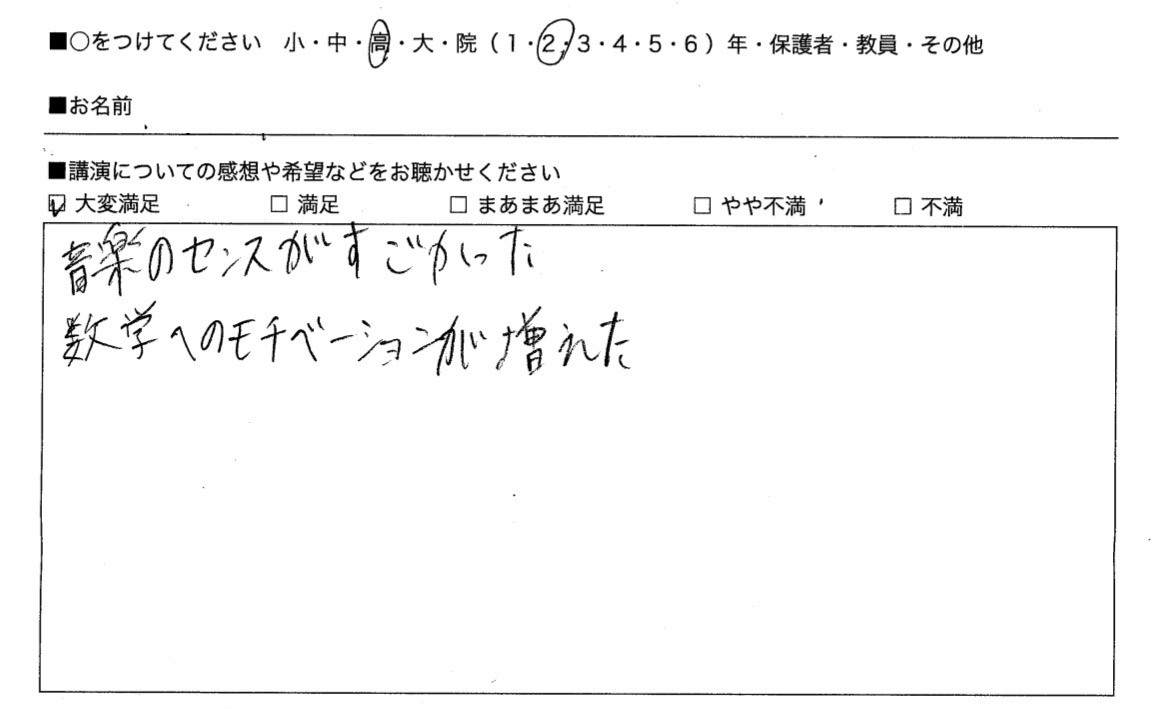 ■○をつけてください 小・中・高・大・院（1・2・3・4・5・6）年・保護者・教員・その他
■お名前
■講演についての感想や希望などをお聴かせください
☑ 大変満足 □ 満足 □ まあまあ満足 □ やや不満 □ 不満
音楽のセンスがすごかった
数学へのモチベーションが増えた